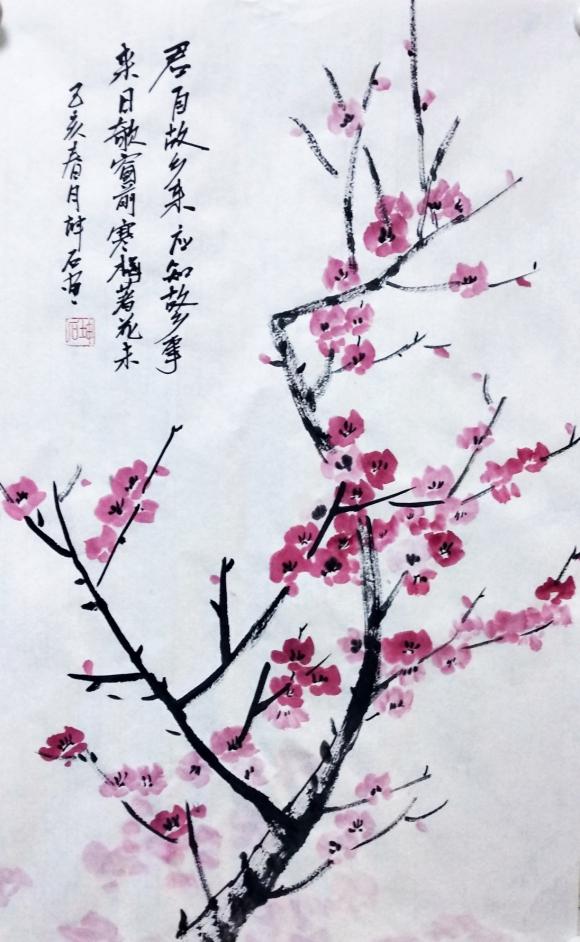 君自故乡来应知故乡事
来日欹窗前寒梅著花未
己亥春月石画